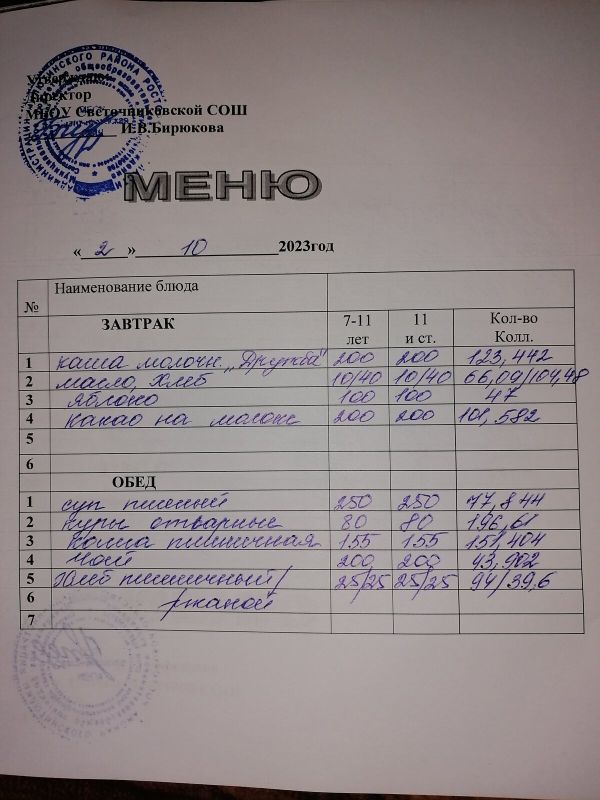 Утверждаю
Директор
МБОУ Светочниковской СОШ
И.В.Бирюкова
МЕНЮ
« 2 » 10 2023год
№ Наименование блюда
ЗАВТРАК 7-11 лет 11 и ст. Кол-во Колл.
1 каша молочн. „Дружба" 200 200 123,442
2 масло, хлеб 10/40 10/40 66,09/104,48
3 яблоко 100 100 47
4 какао на молоке 200 200 101,582
5
6
ОБЕД
1 суп пшенный 250 250 77,844
2 куры отварные 80 80 196,61
3 каша пшеничная 155 155 151,404
4 чай 200 200 43,902
5 Хлеб пшеничный/ 25/25 25/25 94/39,6
6 ржаной
7